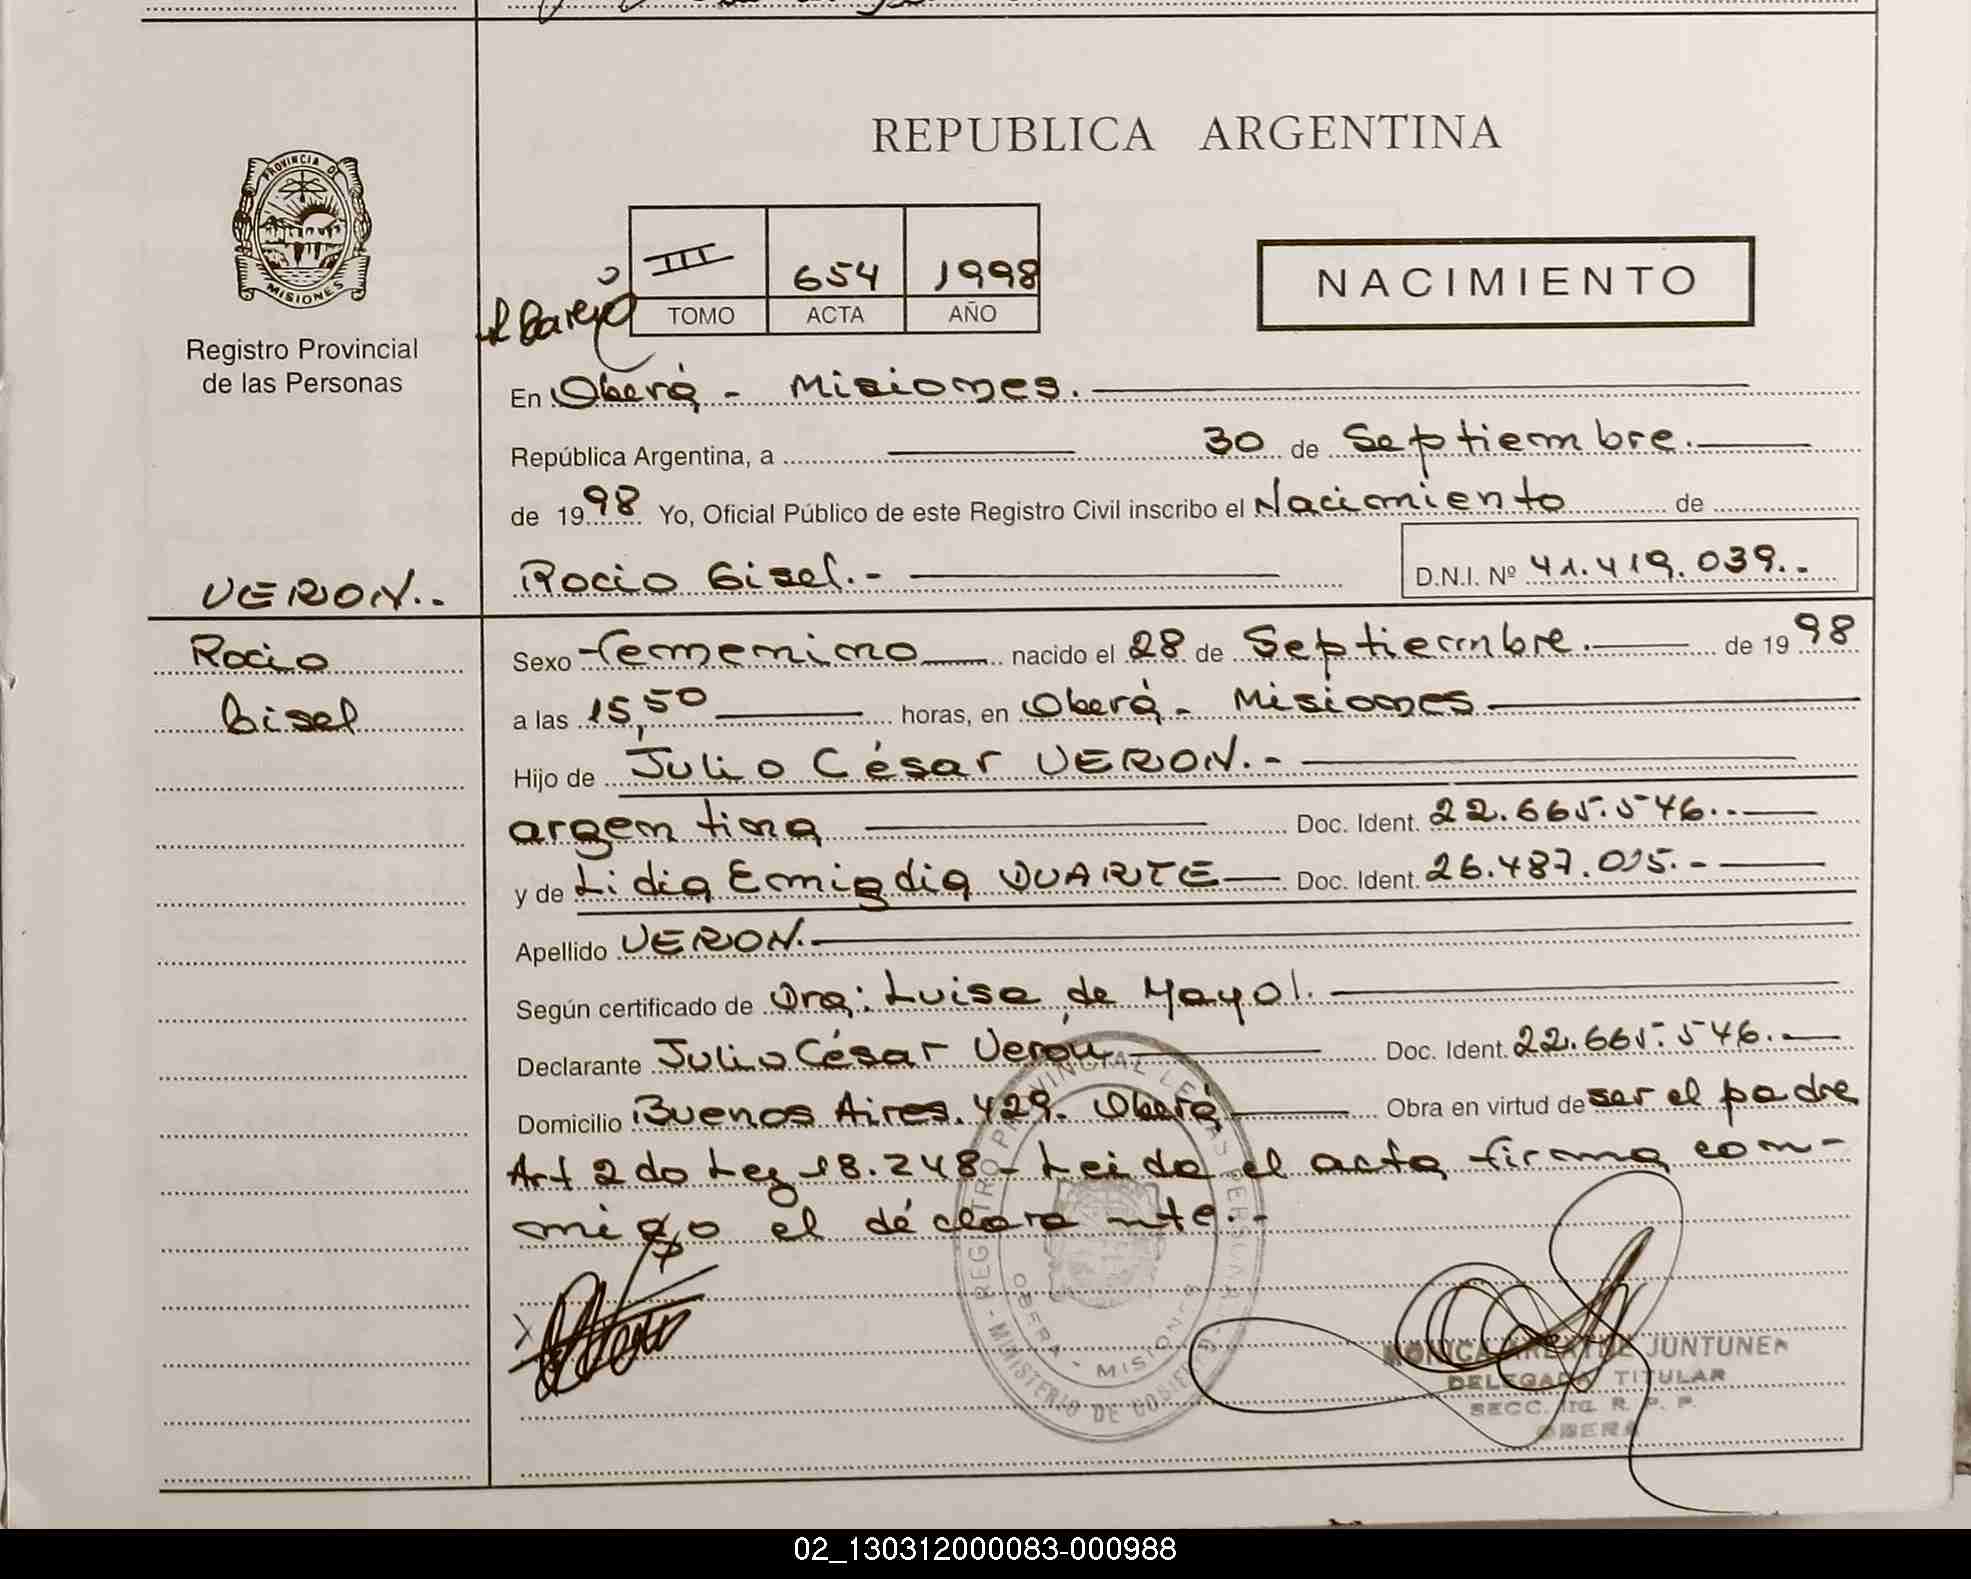 REPUBLICA ARGENTINA
PROVINCIA DE
MISIONES
Registro Provincial
de las Personas
III 654 1998
TOMO ACTA AÑO
NACIMIENTO
En Oberá - Misiones.
República Argentina, a 30 de Septiembre.
de 1998 Yo, Oficial Público de este Registro Civil inscribo el Nacimiento de
Rocio Gisel.- D.N.I. Nº 41.419.039.-
VERON.-
Rocio
Gisel
Sexo femenino nacido el 28 de Septiembre. de 1998
a las 15,50 horas, en Oberá - Misiones
Hijo de Julio César VERON.-
argentina Doc. Ident. 22.665.546.-
y de Lidia Emigdia DUARTE Doc. Ident. 26.487.015.-
Apellido VERON.-
Según certificado de Dra: Luisa de Mayol.
Declarante Julio César Verón Doc. Ident. 22.665.546.-
Domicilio Buenos Aires. 429. Oberá Obra en virtud de ser el padre
Art 2do Ley 18.248 - Leida el acta firma con-
migo el declarante.-
REGISTRO PROVINCIAL DE LAS PERSONAS
OBERA - MISIONES
MINISTERIO DE GOBIERNO
MONICA JUNTUNEN
DELEGADA TITULAR
SECC. 1ra. R. P. P.
OBERA
02_130312000083-000988